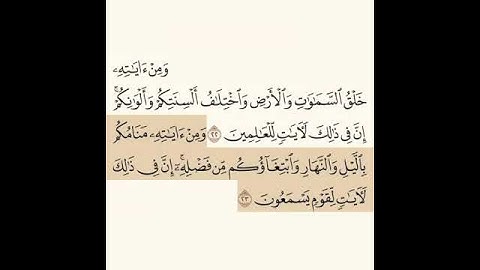 وَمِنْ ءَايَـٰتِهِۦ
خَلْقُ ٱلسَّمَـٰوَٰتِ وَٱلْأَرْضِ وَٱخْتِلَـٰفُ أَلْسِنَتِكُمْ وَأَلْوَٰنِكُمْ ۚ
إِنَّ فِى ذَٰلِكَ لَـَٔايَـٰتٍ لِّلْعَـٰلِمِينَ ٢٢ وَمِنْ ءَايَـٰتِهِۦ مَنَامُكُم
بِٱلَّيْلِ وَٱلنَّهَارِ وَٱبْتِغَآؤُكُم مِّن فَضْلِهِۦٓ ۚ إِنَّ فِى ذَٰلِكَ
لَـَٔايَـٰتٍ لِّقَوْمٍ يَسْمَعُونَ ٢٣